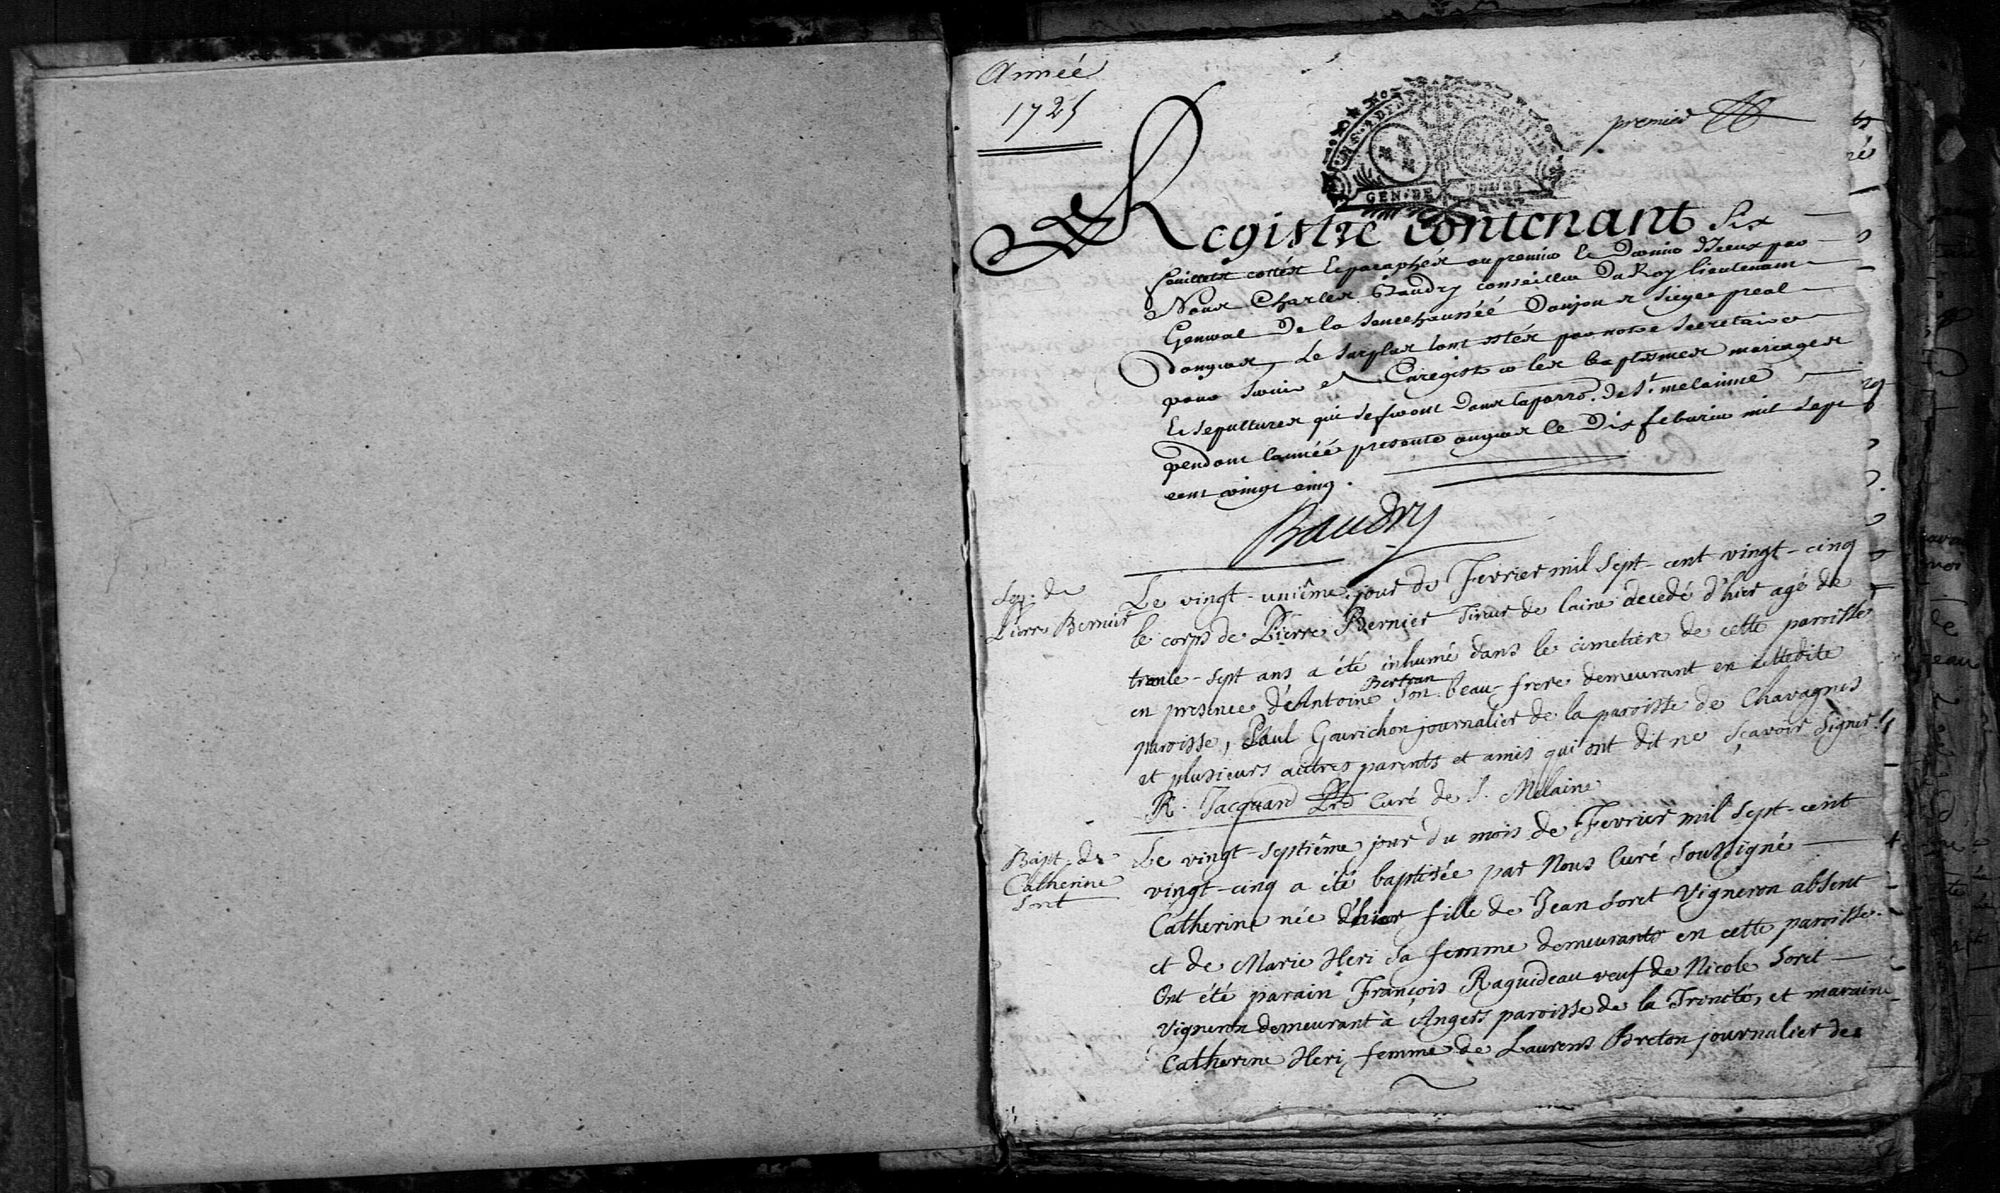 Année
1725
premier
GEN. DE TOURS
Registre contenant Six
feuillets cottés et paraphés au premier et dernier d'iceux par
Nous Charles Gaudry conseiller du Roy lieutenant
General de la Senechaussée d'anjou et siege preal
d'angers, le surplus tant cottés par notre secretaire
pour servir et Enregistrer les baptismes mariages
Et sepultures qui se feront dans la parro. de St. melainne
pendant lannée presente angers le dix febvrier mil sept
cent vingt cinq.
Baudry
Sep. de
Pierre Bernier
Le vingt-uniême jour de Fevrier mil sept-cent vingt-cinq
le corps de Pierre Bernier Tireur de laine decedé d'hier agé de
trente-sept ans a été inhumé dans le cimetiere de cette paroisse
en presence d'Antoine Bertran son beau-frere demeurant en cettedite
paroisse, Paul Gourichon journalier de la paroisse de Chavagnes
et plusieurs autres parents et amis qui ont dit ne sçavoir signer.
R. Jacquard Curé de S. Melaine
Bapt. de
Catherine
Soret
Le vingt-septiême jour du mois de Fevrier mil sept-cent
vingt-cinq a été baptisée par Nous Curé soussigné
Catherine née d'hier fille de Jean Soret Vigneron absent
et de Marie Heri sa femme demeurants en cette paroisse.
Ont été parain François Raguideau veuf de Nicole Soret
Vigneron demeurant à Angers paroisse de la Trinité, et maraine
Catherine Heri femme de Laurens Breton journalier de